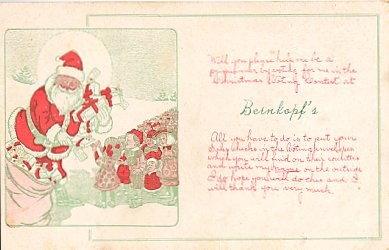 Will you please help me be a
by voting for me in the
Christmas Voting Contest at
Beinkopf's
All you have to do is to put your
Sales Checks in the Voting Envelopes
which you will find on their counters
and write my name on the outside
I do hope you will do this and I
will thank you very much.